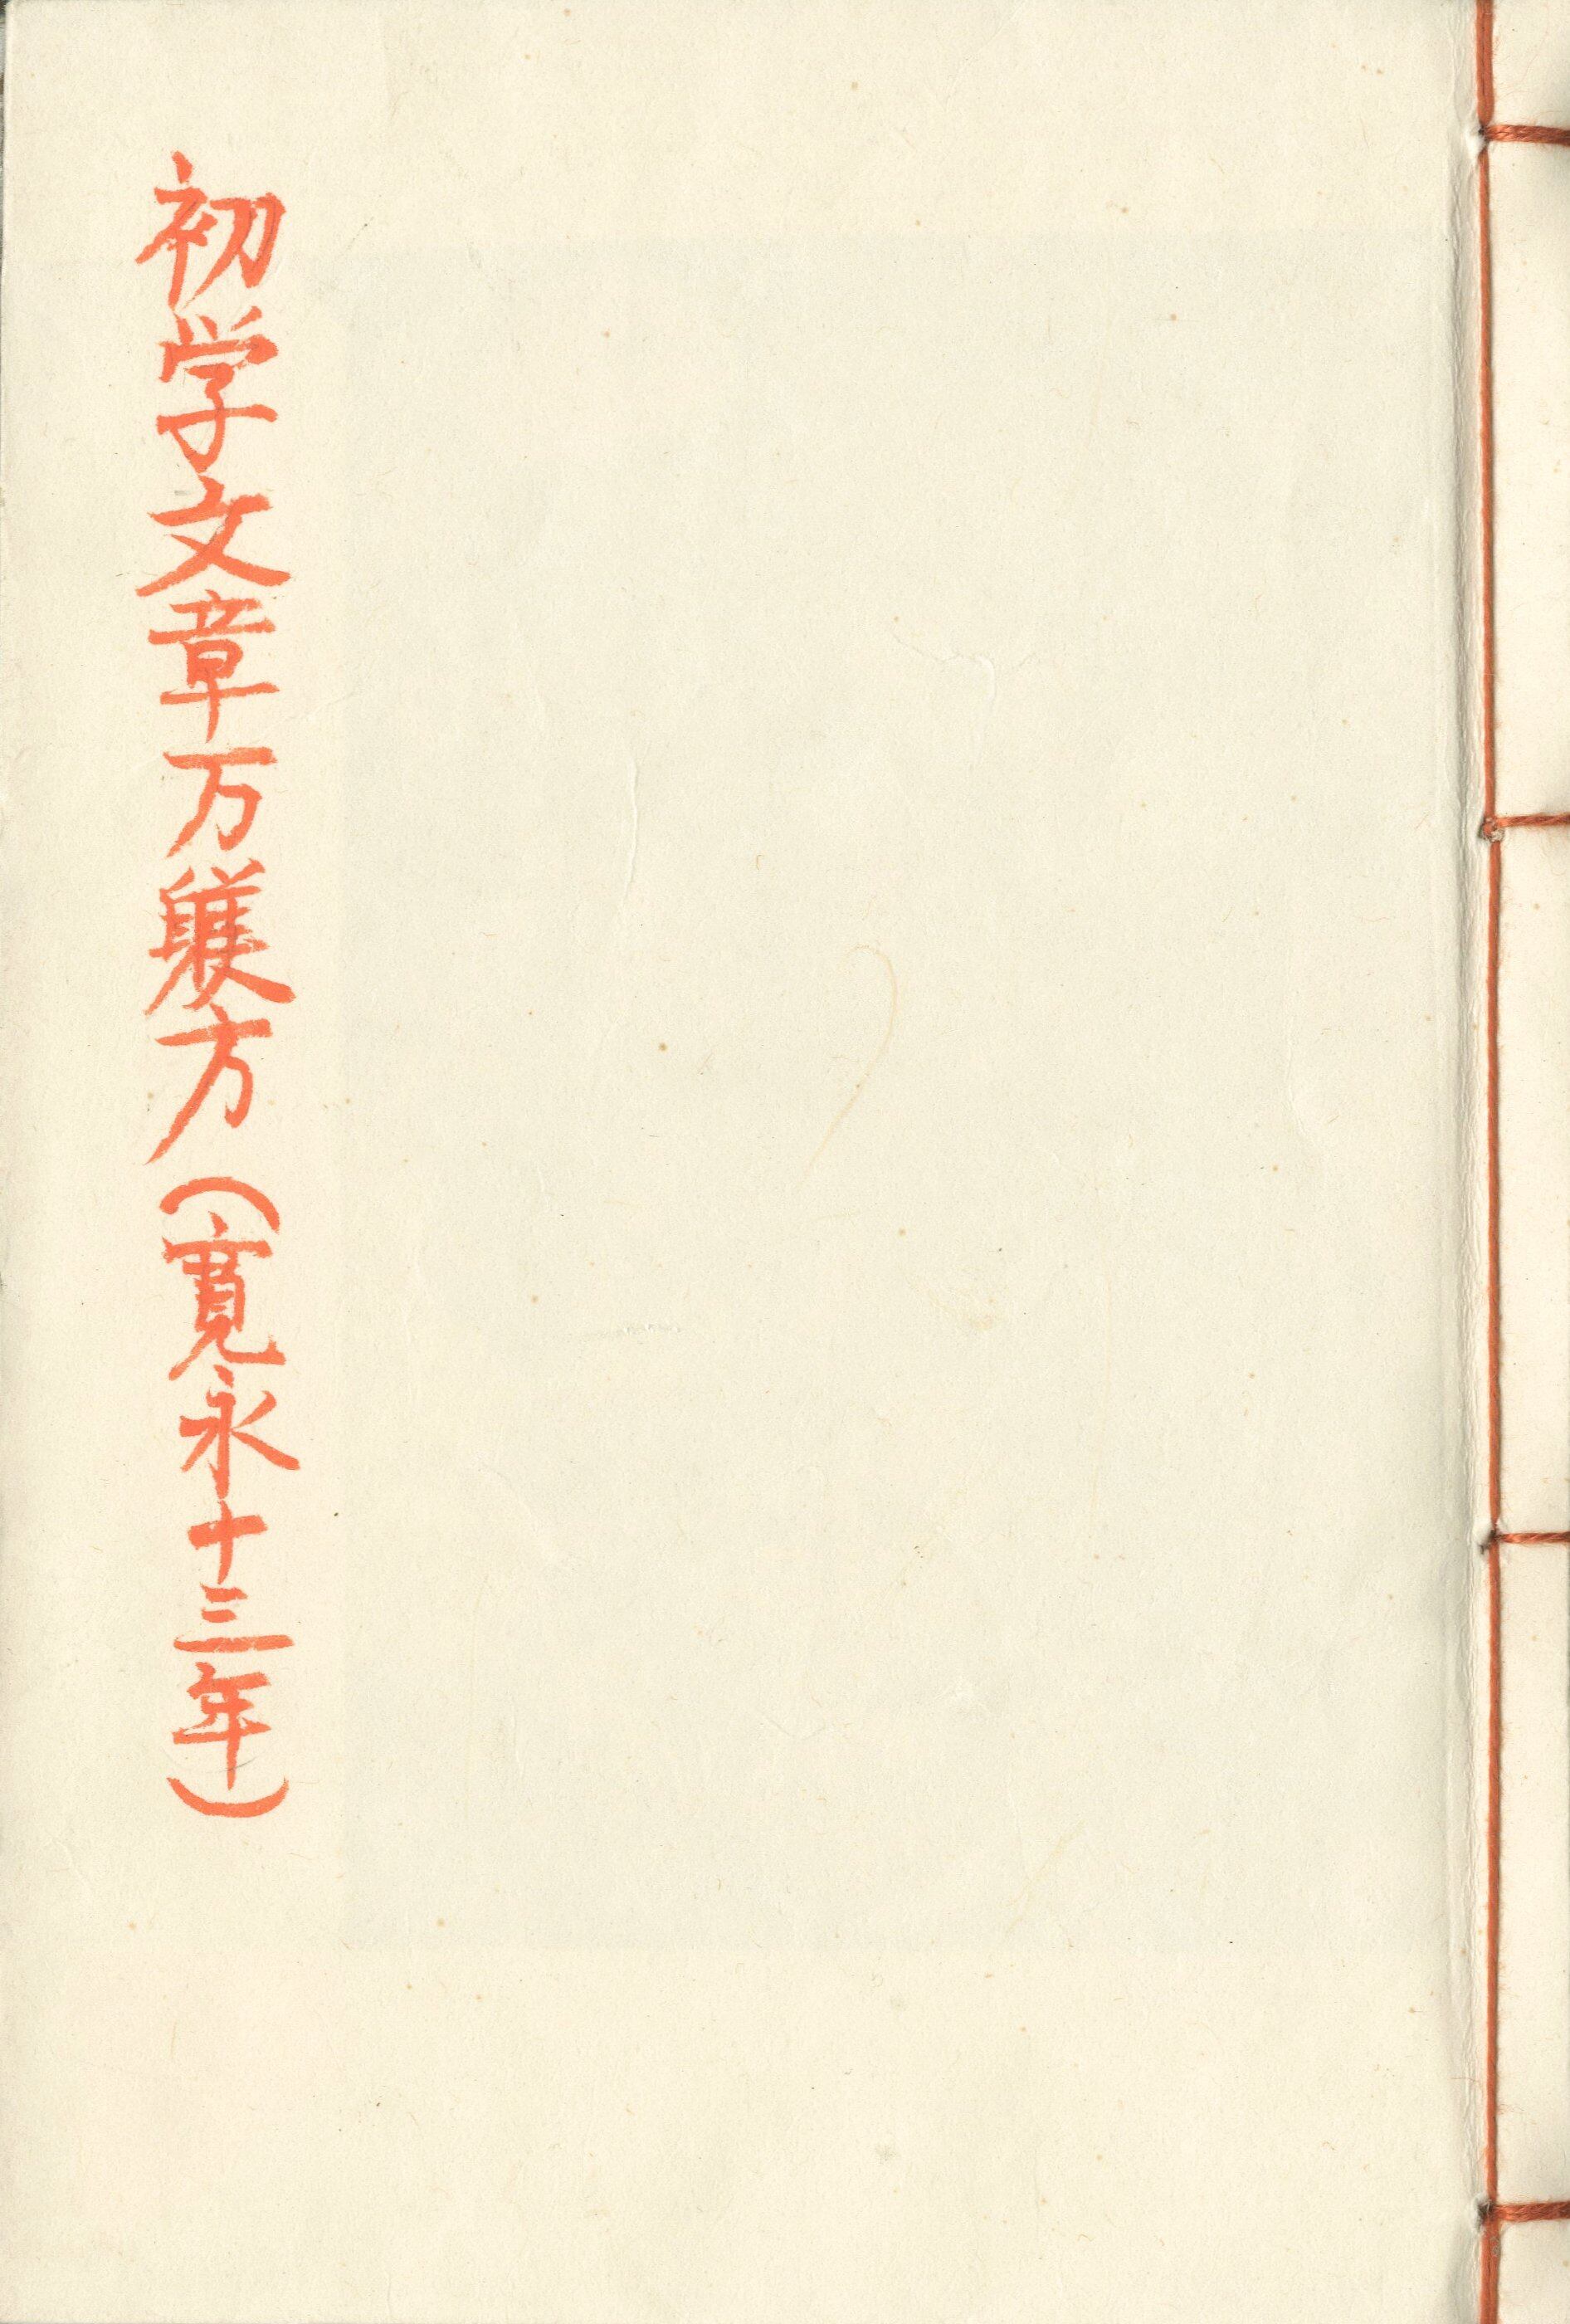 初学文章万躾方（寛永十三年）